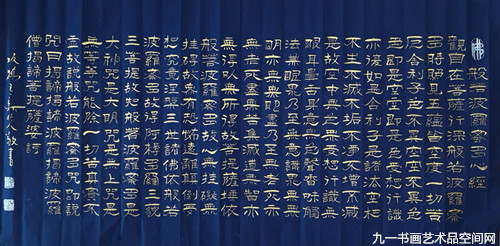 佛
般若波羅蜜多心經
觀自在菩薩行深般若波羅蜜
多時照見五蘊皆空度一切苦
厄舍利子色不異空空不異色
色即是空空即是色受想行識
亦復如是舍利子是諸法空相
不生不滅不垢不淨不增不減
是故空中無色無受想行識無
眼耳鼻舌身意無色聲香味觸
法無眼界乃至無意識界無無
明亦無無明盡乃至無老死亦
無老死盡無苦集滅道無智亦
無得以無所得故菩提薩埵依
般若波羅蜜多故心無挂礙無
挂礙故無有恐怖遠離顛倒夢
想究竟涅槃三世諸佛依般若
波羅蜜多故得阿耨多羅三藐
三菩提故知般若波羅蜜多是
大神咒是大明咒是無上咒是
無等等咒能除一切苦真實不
虛故說般若波羅蜜多咒即說
咒曰揭諦揭諦波羅揭諦波羅
僧揭諦菩提薩婆訶
九一书画艺术品空间网